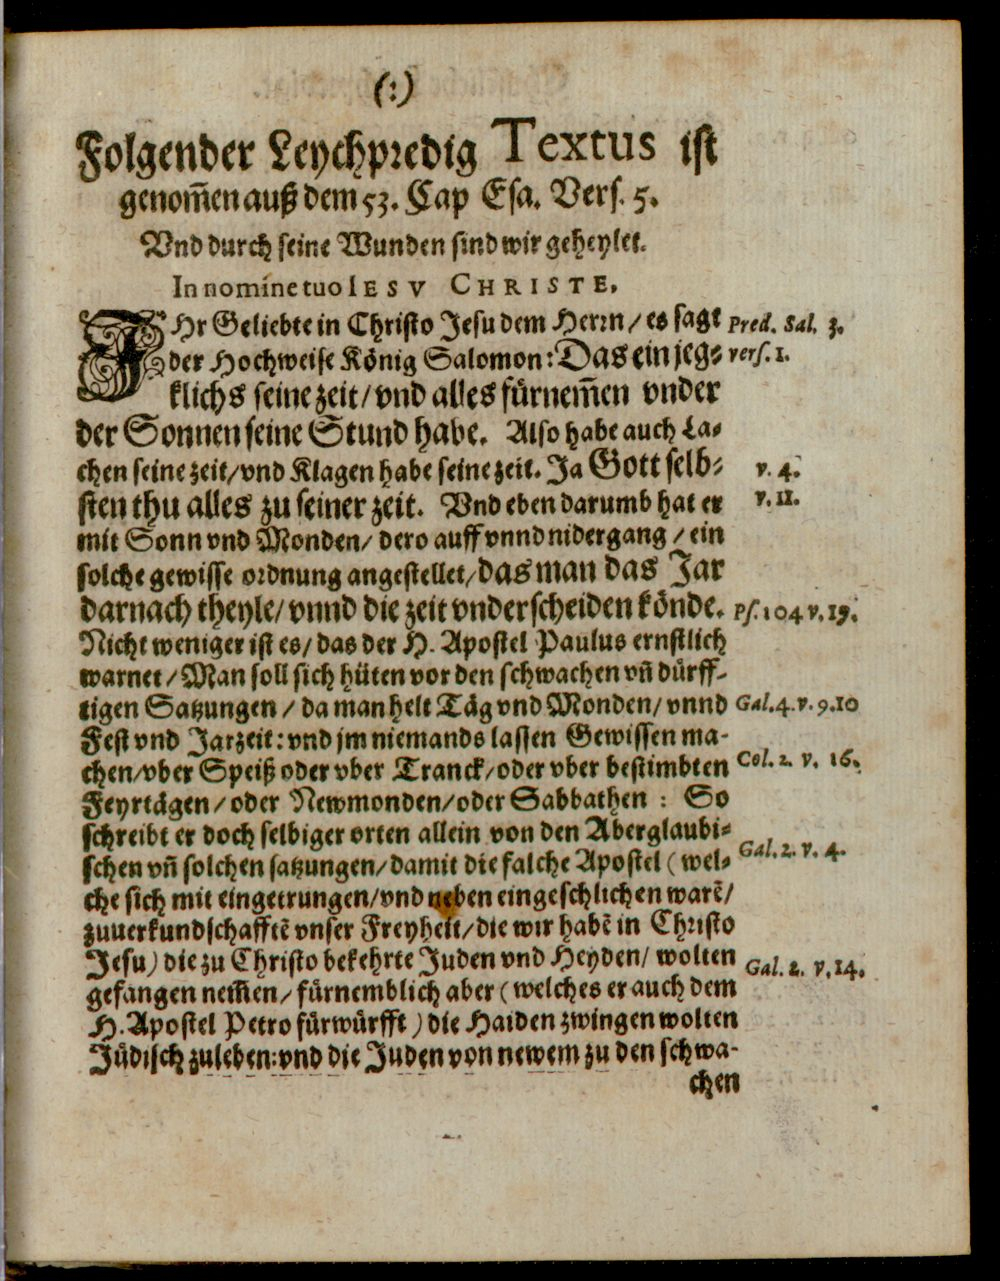 (:)
Folgender Leychpredig Textus ist
genom̃en auß dem 53. Cap Esa. Vers. 5.
Vnd durch seine Wunden sind wir geheylet.
In nomine tuo IESV CHRISTE,
IHr Geliebte in Christo Jesu dem Herrn/ es sagt Pred. Sal. 3.
der Hochweise König Salomon: Das ein jeg= vers. 1.
klichs seine zeit/ vnd alles fürnem̃en vnder
der Sonnen seine Stund habe. Also habe auch La=
chen seine zeit/ vnd Klagen habe seine zeit. Ja Gott selb= v. 4.
sten thu alles zu seiner zeit. Vnd eben darumb hat er v. 11.
mit Sonn vnd Monden/ dero auff vnnd nidergang / ein
solche gewisse ordnung angestellet/ das man das Jar
darnach theyle/ vnnd die zeit vnderscheiden könde. Ps. 104 v. 19.
Nicht weniger ist es/ das der H. Apostel Paulus ernstlich
warnet / Man soll sich hüten vor den schwachen vñ dürff-
tigen Satzungen / da man helt Täg vnd Monden/ vnnd Gal. 4. v. 9. 10
Fest vnd Jarzeit: vnd jm niemands lassen Gewissen ma-
chen/ vber Speiß oder vber Tranck/ oder vber bestimbten Col. 2. v. 16.
Feyrtägen / oder Newmonden/ oder Sabbathen : So
schreibt er doch selbiger orten allein von den Aberglaubi=
schen vñ solchen satzungen/ damit die falche Apostel ( wel= Gal. 2. v. 4.
che sich mit eingetrungen/ vnd neben eingeschlichen warẽ/
zuuerkundschafftẽ vnser Freyheit/ die wir habẽ in Christo
Jesu) die zu Christo bekehrte Juden vnd Heyden/ wolten Gal. 2. v. 14.
gefangen nem̃en/ fürnemblich aber ( welches er auch dem
H. Apostel Petro fürwürfft ) die Haiden zwingen wolten
Jüdisch zuleben: vnd die Juden von newem zu den schwa-
chen